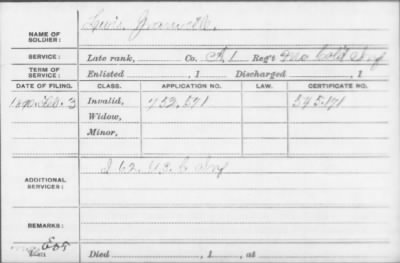 Lewis Granville.
NAME OF SOLDIER:
SERVICE: Late rank, Co. A, 1 Reg't Mo Col'd Inf
TERM OF SERVICE: Enlisted , 1 Discharged , 1
DATE OF FILING. CLASS. APPLICATION NO. LAW. CERTIFICATE NO.
Feb. 3 Invalid, 752.571 595.171
Widow,
Minor,
ADDITIONAL SERVICES: I 62. U.S.C. Inf
REMARKS:
Died , 1 , at